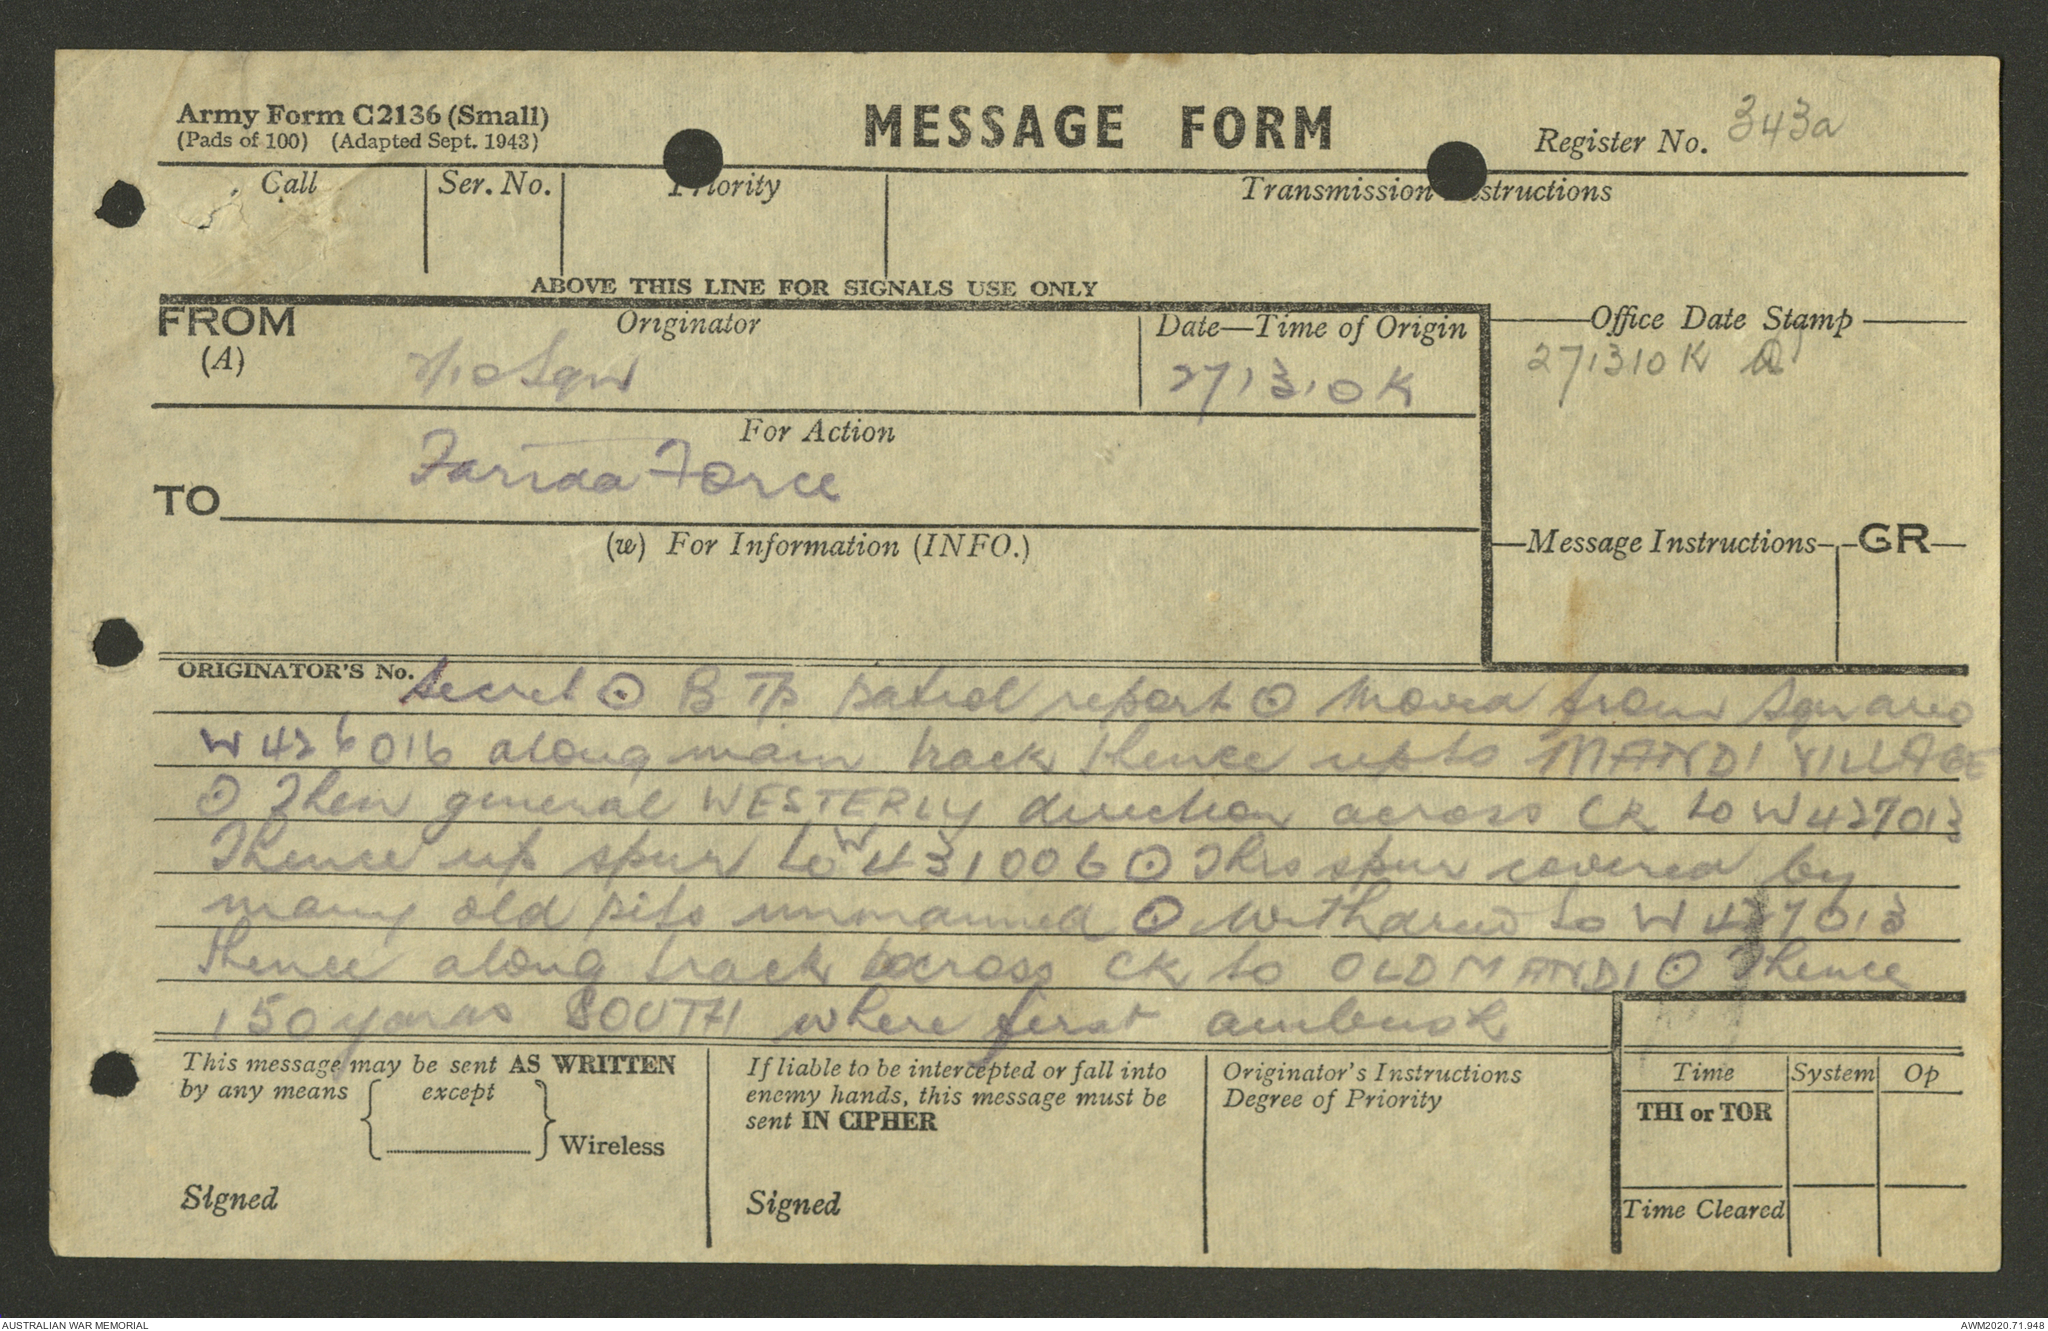 Army Form C2136 (Small)
(Pads of 100) (Adapted Sept. 1943)
MESSAGE FORM
Register No. 343a
Call
Ser. No.
Priority
Transmission Instructions
ABOVE THIS LINE FOR SIGNALS USE ONLY
FROM
(A)
Originator
2/10 Sqn
Date—Time of Origin
271310K
Office Date Stamp
271310K
For Action
TO
Farida Force
(w) For Information (INFO.)
Message Instructions
GR
ORIGINATOR'S No.
Secret ⊙ B Tp patrol report ⊙ Moved from Sqn area
W426016 along main track thence up to MANDI VILLAGE
⊙ Then general WESTERLY direction across CK to W427013
Thence up spur to W431006 ⊙ This spur covered by
many old pits unmanned ⊙ Withdrew to W427013
thence along track across CK to OLD MANDI ⊙ Thence
150 yards SOUTH where first ambush
This message may be sent AS WRITTEN
by any means
except
Wireless
Signed
If liable to be intercepted or fall into
enemy hands, this message must be
sent IN CIPHER
Signed
Originator's Instructions
Degree of Priority
Time
System
Op
THI or TOR
Time Cleared
AUSTRALIAN WAR MEMORIAL
AWM2020.71.948